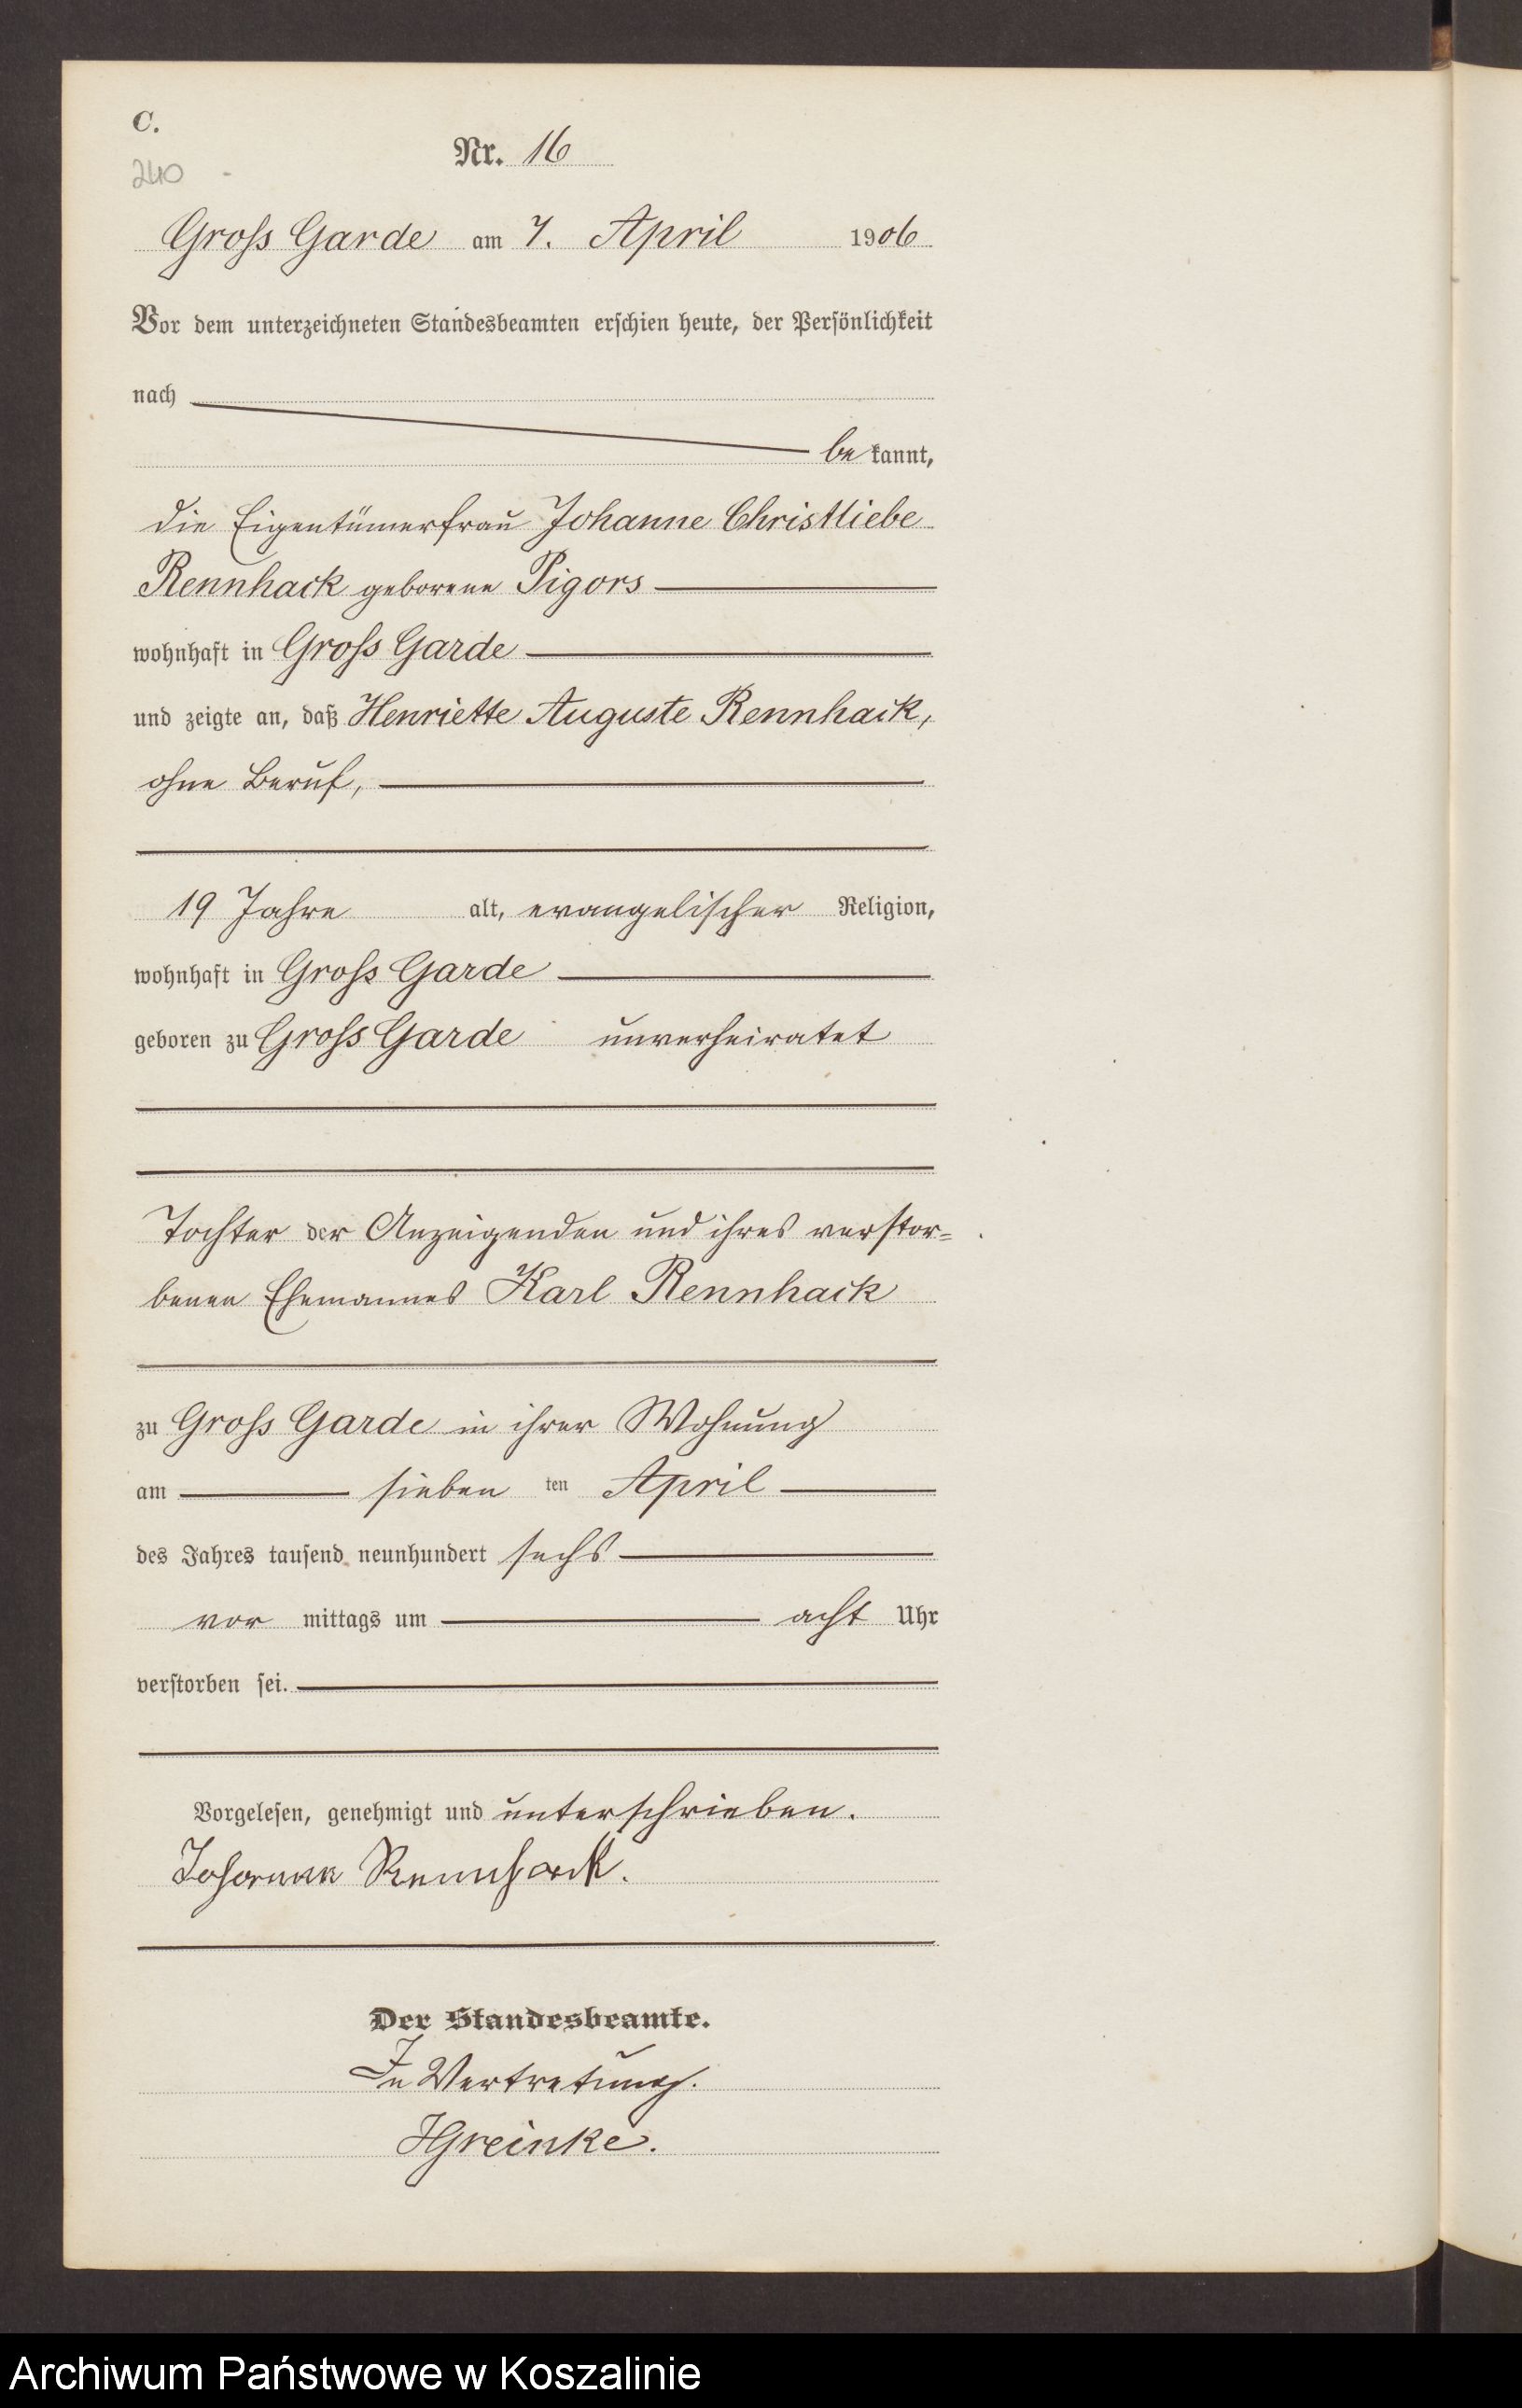 C.
240
Nr. 16
Gross Garde am 7. April 1906
Vor dem unterzeichneten Standesbeamten erschien heute, der Persönlichkeit
nach
be kannt,
die Eigentümerfrau Johanne Christliebe
Rennhack geborene Pigors
wohnhaft in Gross Garde
und zeigte an, daß Henriette Auguste Rennhack,
ohne Beruf,
19 Jahre alt, evangelischer Religion,
wohnhaft in Gross Garde
geboren zu Gross Garde unverheiratet
Tochter der Anzeigenden und ihres verstor=
benen Ehemannes Karl Rennhack
zu Gross Garde in ihrer Wohnung
am sieben ten April
des Jahres tausend neunhundert sechs
vor mittags um acht Uhr
verstorben sei.
Vorgelesen, genehmigt und unterschrieben.
Johanne Rennhack.
Der Standesbeamte.
In Vertretung.
HGreinke.
Archiwum Państwowe w Koszalinie